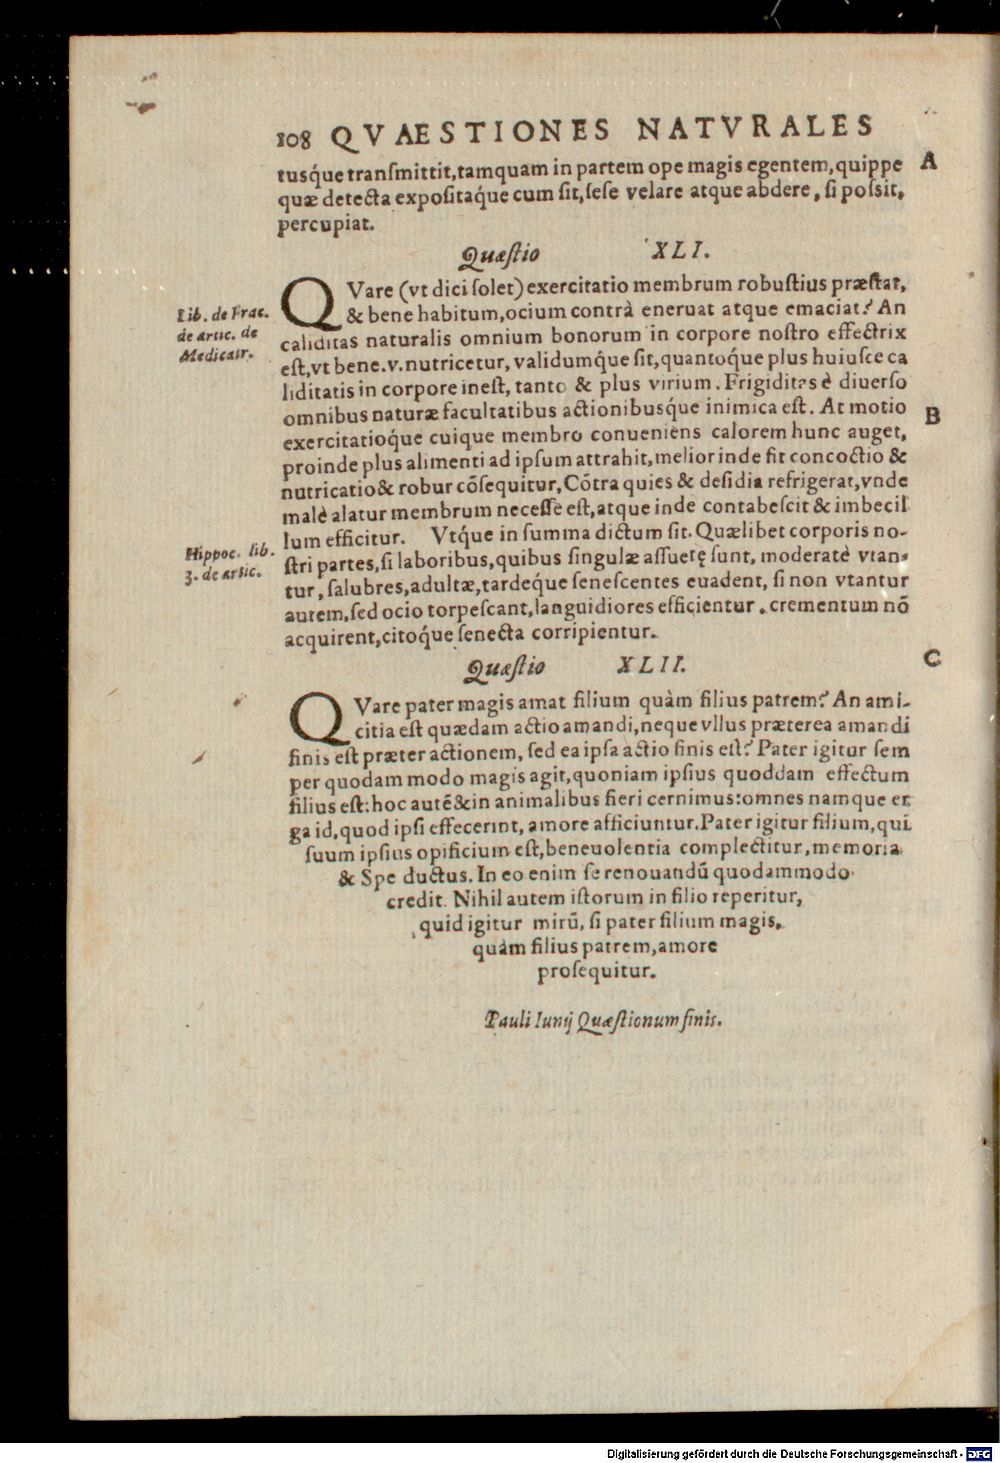 108 QVAESTIONES NATVRALES
tusq́ue transmittit,tamquam in partem ope magis egentem,quippe
A
quæ detecta expositaq́ue cum sit,sese velare atque abdere, si possit,
percupiat.
Quæstio XLI.
QVare (vt dici solet) exercitatio membrum robustius præstat,
Lib. de Frac.
& bene habitum,ocium contrà eneruat atque emaciat? An
de artic. de
caliditas naturalis omnium bonorum in corpore nostro effectrix
Medicatr.
est,vt bene.v.nutricetur, validumq́ue sit,quantoq́ue plus huiusce ca
liditatis in corpore inest, tanto & plus virium. Frigiditas è diuerso
omnibus naturæ facultatibus actionibusq́ue inimica est. At motio
B
exercitatioq́ue cuique membro conueniens calorem hunc auget,
proinde plus alimenti ad ipsum attrahit,melior inde fit concoctio &
nutricatio & robur cõsequitur, Cõtra quies & desidia refrigerat,vnde
malè alatur membrum necesse est,atque inde contabescit & imbecil
lum efficitur. Vtq́ue in summa dictum sit. Quælibet corporis no-
Hippoc. lib.
stri partes,si laboribus,quibus singulæ assuetę sunt, moderatè vtan-
3. de artic.
tur, salubres,adultæ,tardeq́ue senescentes euadent, si non vtantur
autem,sed ocio torpescant,languidiores efficientur. crementum nõ
acquirent,citoq́ue senecta corripientur.
C
Quæstio XLII.
QVare pater magis amat filium quàm filius patrem? An ami-
citia est quædam actio amandi,neque vllus præterea amandi
finis est præter actionem, sed ea ipsa actio finis est? Pater igitur sem
per quodam modo magis agit,quoniam ipsius quoddam effectum
filius est: hoc autẽ & in animalibus fieri cernimus:omnes namque er
ga id,quod ipsi effecerint, amore afficiuntur.Pater igitur filium,qui
suum ipsius opificium est,beneuolentia complectitur,memoria
& Spe ductus. In eo enim se renouandũ quodammodo
credit. Nihil autem istorum in filio reperitur,
quid igitur mirũ, si pater filium magis,
quàm filius patrem,amore
prosequitur.
Pauli Iunij Quæstionum finis.
Digitalisierung gefördert durch die Deutsche Forschungsgemeinschaft - DFG